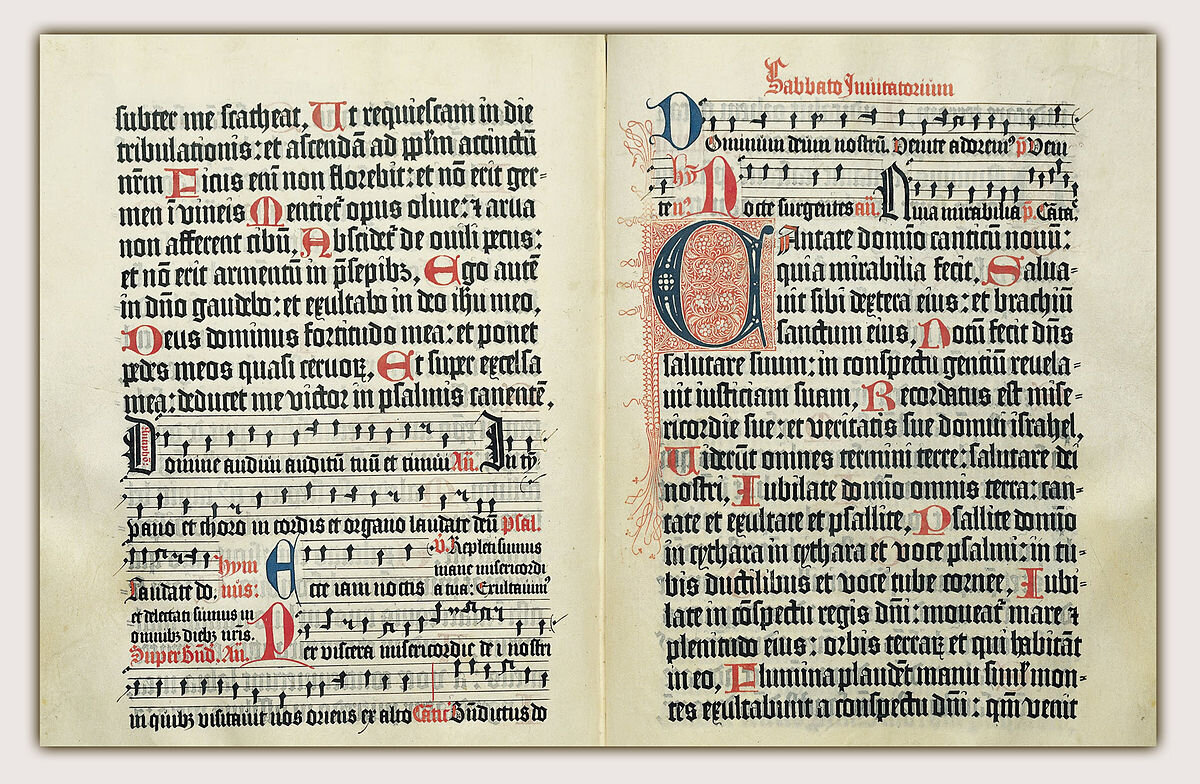 subter me scatheat, Ut requiescam in die
tribulationis: et ascendā ad pplm accinctū
nrm Ficus enī non florebit: et nō erit ger-
men ī vineis Mentiet opus oliue: ⁊ arua
non afferent cibū, Abscidet de ouili pecus:
et nō erit armentū in p̄sepibꝫ, Ego autē
in dño gaudebo: et exultabo in deo ihu meo,
Deus dominus fortitudo mea: et ponet
pedes meos quasi ceruoꝝ, Et super excelsa
mea: deducet me victor in psalmis canentē,
Domine audiui auditū tuū et timui Añ. In ty
pano et choro in cordis et organo laudate deū psal.
hym
Laudate do, nus: Ecce iam noctis
v̄. Repleti sumus
mane misericordi
a tua: Exultauim⁹
et delectati sumus in
omnibꝫ diebꝫ nris.
Super Bñd. Añ. Per viscera misericordie de i nostri
in quibꝫ visitauit nos oriens ex alto Bñdictus do
Sabbato Inuitatorium
Dominum deum nostrū. Venite adorem⁹ p̄ Veni
te hȳ n⁹. Nocte surgentes añ. Quia mirabilia p̄. Cāta.
Cantate domīo canticū nouū:
quia mirabilia fecit, Salua-
uit sibi dextera eius: et brachiū
sanctum eius, Notū fecit dñs
salutare suum: in conspectu gentiū reuela-
uit iusticiam suam, Recordatus est mise-
ricordie sue: et veritatis sue domui israhel,
Viderūt omnes termini terre: salutare dei
nostri, Iubilate domīo omnis terra: can-
tate et exultate et psallite, Psallite domīo
in cythara in cythara et voce psalmi: in tu-
bis ductilibus et voce tube cornee, Iubi-
late in cōspectu regis dñi: moueat mare ⁊
plenitudo eius: orbis terraꝝ et qui habitāt
in eo, Flumina plaudēt manu simł mon-
tes exultabunt a conspectu dñi: qm̄ venit